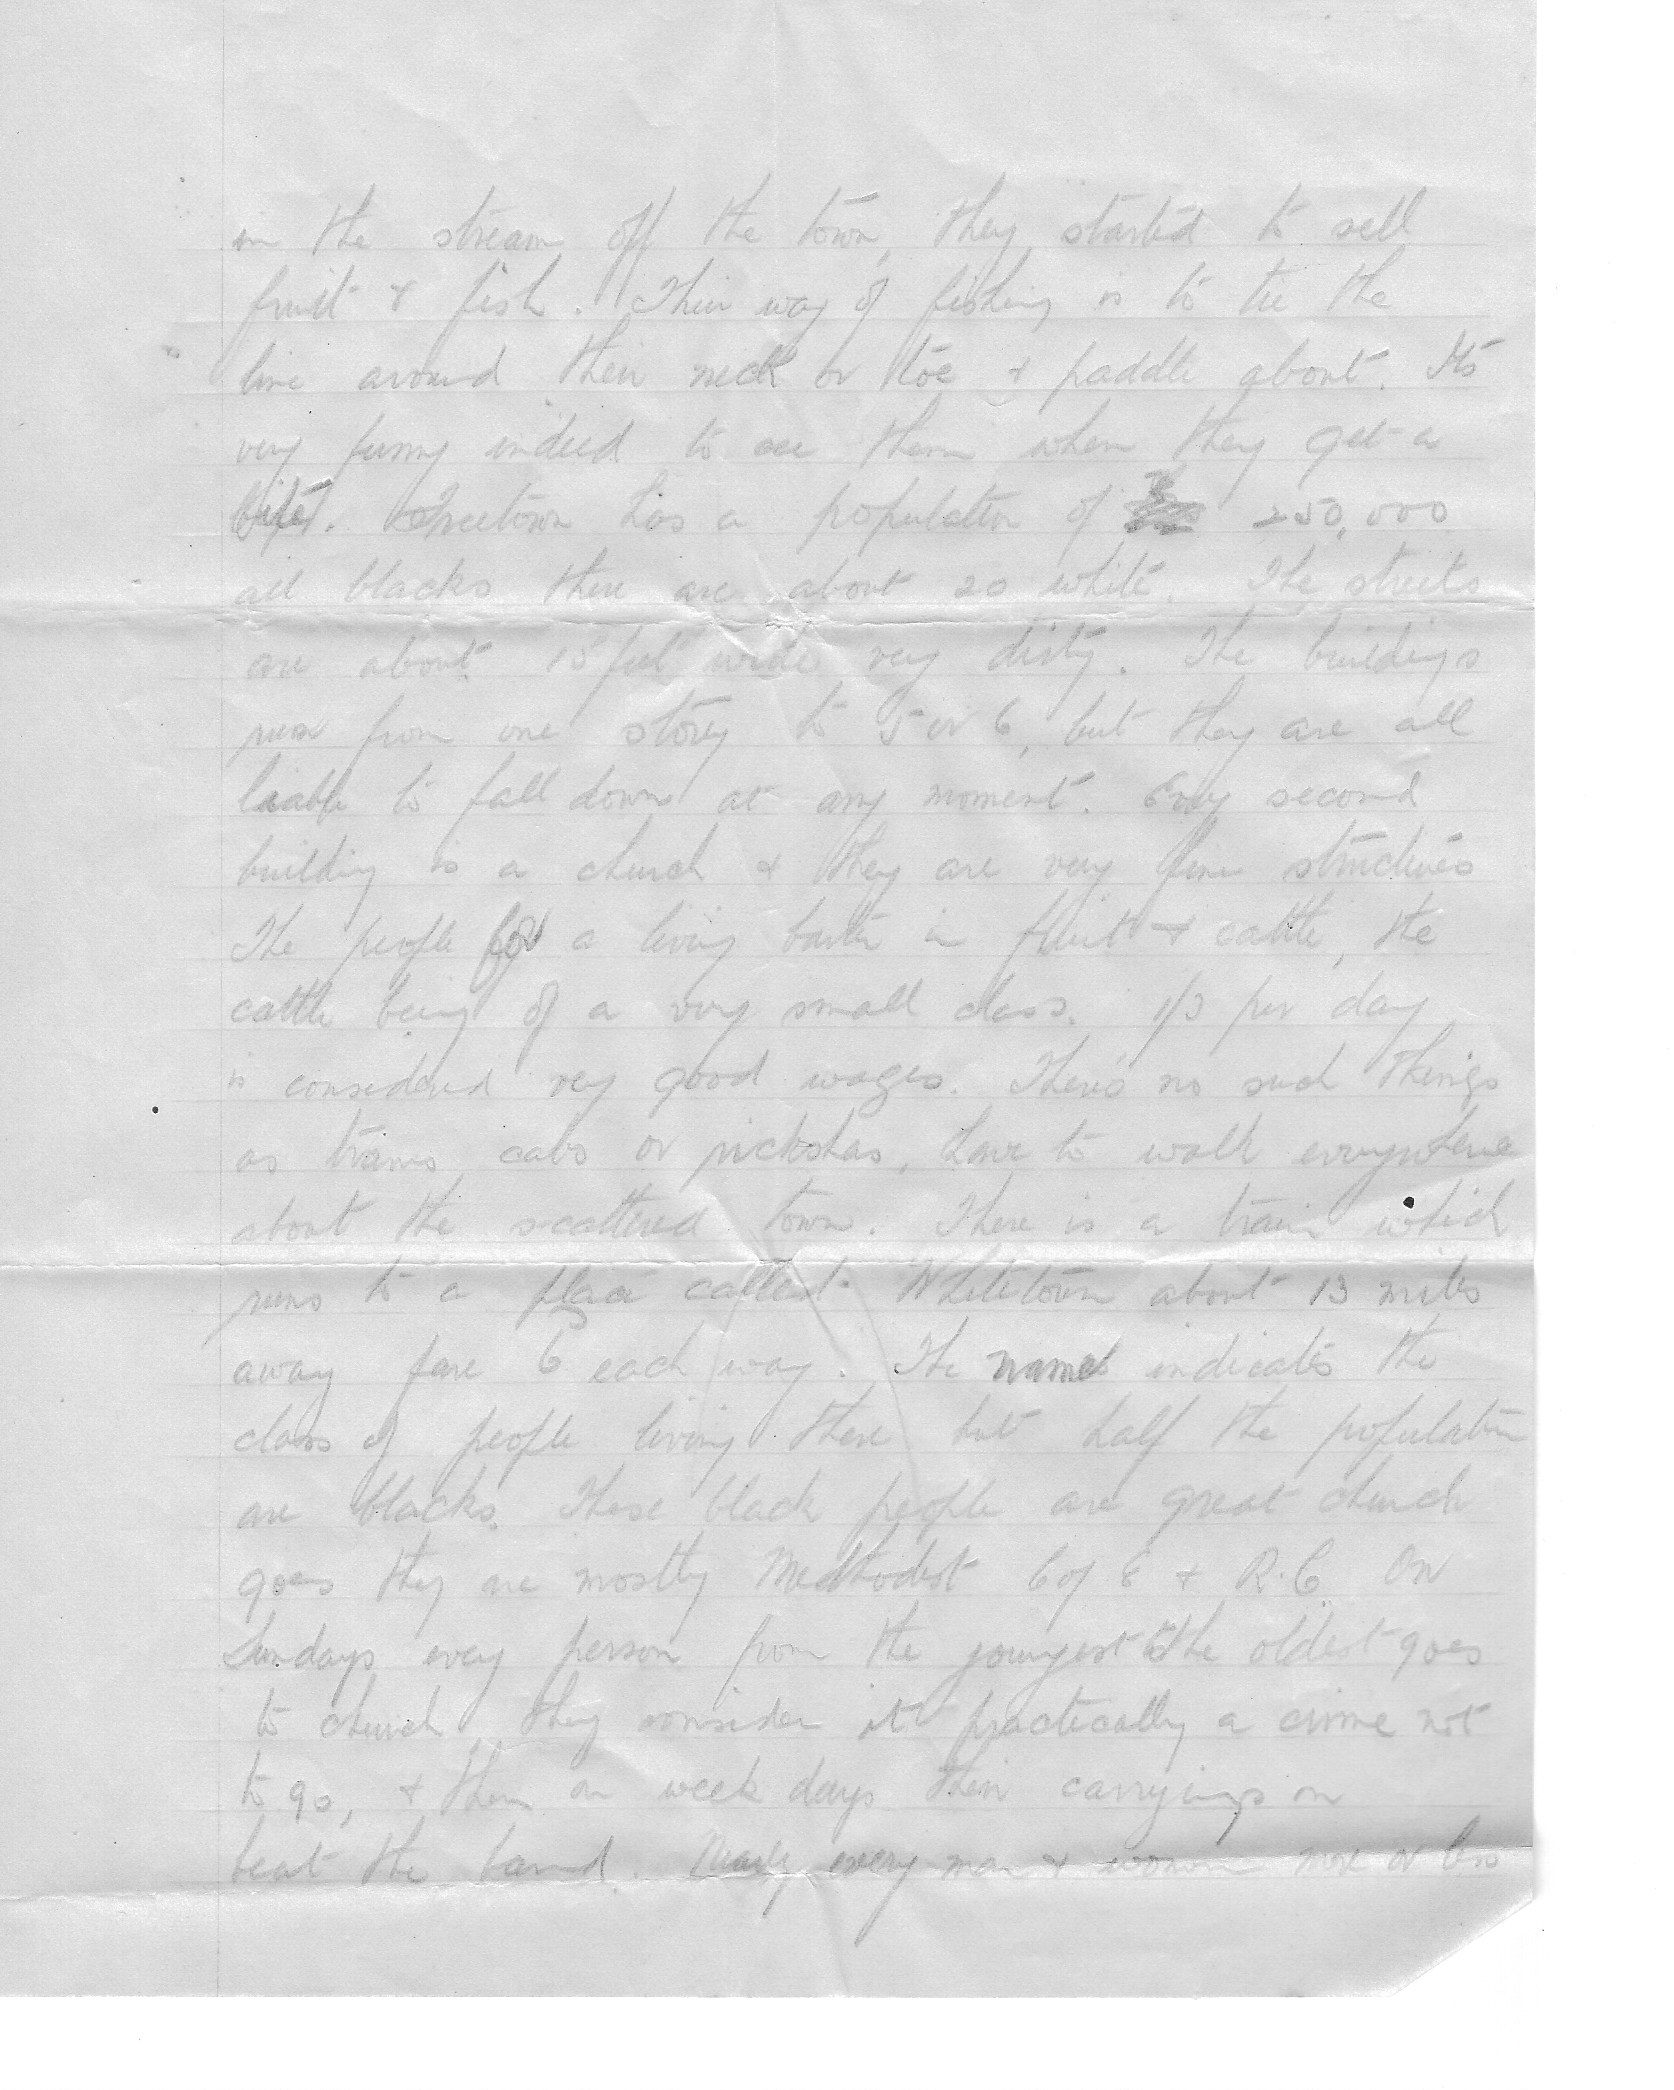 in the stream off the town, they started to sell
fruit & fish. Their way of fishing is to tie the
line around their neck or toe & paddle about. Its
very funny indeed to see them when they get a
bite. Freetown has a population of 250,000
all blacks there are about 20 white. The streets
are about 15 feet wide very dirty. The buildings
run from one storey to 5 or 6, but they are all
liable to fall down at any moment. Every second
building is a church & they are very fine structures
The people for a living barter in fruit & cattle, the
cattle being of a very small class. 1/3 per day
is considered very good wages. There's no such things
as trams, cabs or rickshas, have to walk everywhere
about the scattered town. There is a train which
runs to a place called Whitetown about 13 miles
away fare 6 each way. The name indicates the
class of people living there but half the population
are blacks. These black people are great church
goers they are mostly Methodist C of E & R.C. On
Sundays every person from the youngest to the oldest goes
to church, they consider it practically a crime not
to go, & then on week days their carryings on
beat the band. Nearly every man & woman more or less